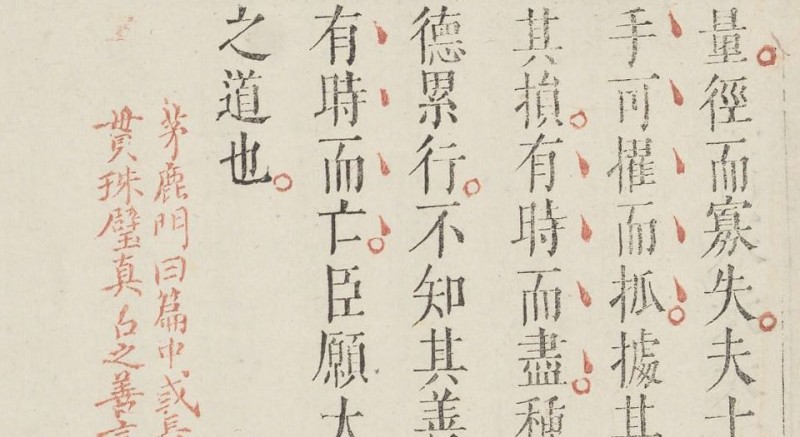 量。徑而寡失。夫十
手可擢而抓。據其
其損。有時而盡。種
德累行。不知其善
有時而亡。臣願大
之道也。
茅鹿門曰篇中或長
貫珠璧真古之善言